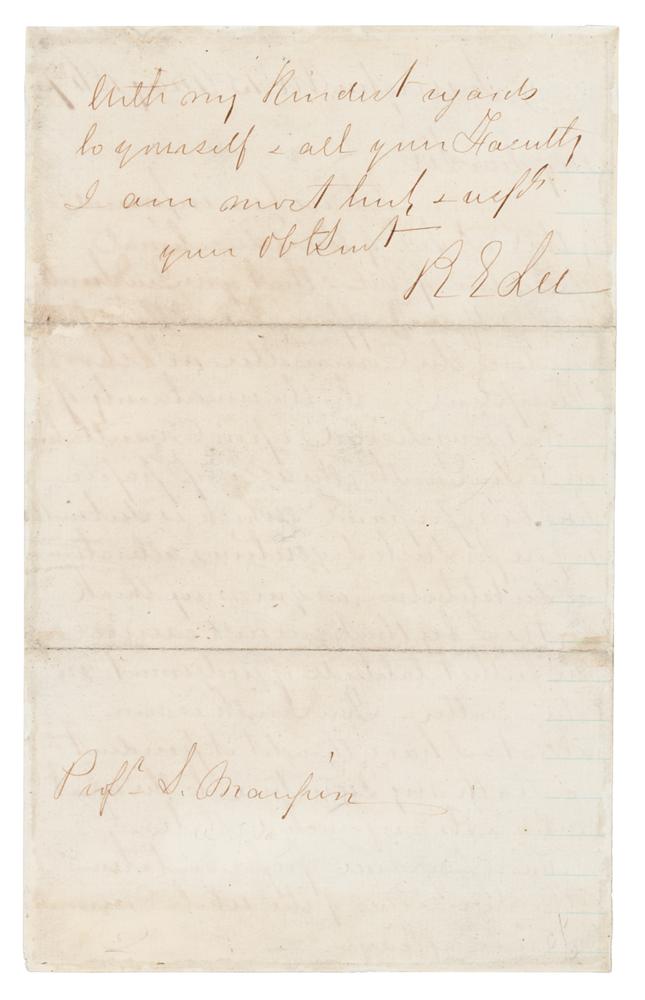 With my kindest regards
to yourself & all your Faculty
I am most truly & respy
your obt Servt
R E Lee
Profr S. Maupin